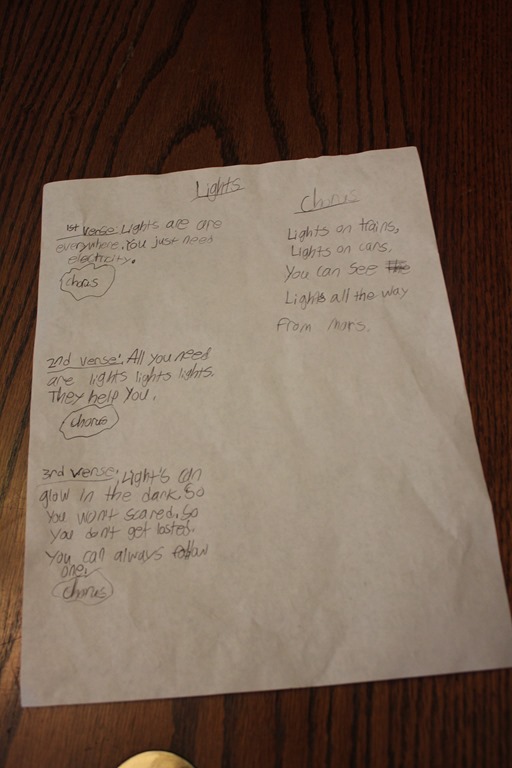 Lights
1st verse: Lights are are
everywhere. You just need
electricity.
Chorus
2nd verse: All you need
are lights lights lights.
They help you.
Chorus
3rd verse: Light's can
glow in the dark. So
you won't scared. So
you don't get losted.
You can always follow
one.
Chorus
Chorus
Lights on trains,
Lights on cars.
You can see the
Lights all the way
from mars.